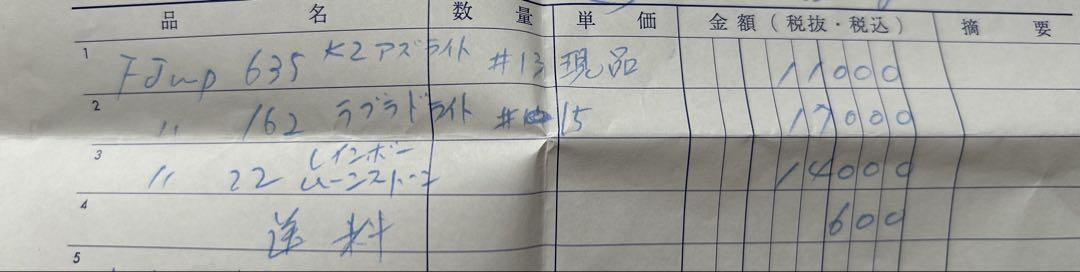 品 名 数 量 単 価 金 額 ( 税抜・税込 ) 摘 要
1 FJup 635 K2アズライト #13 現品 11000
2 〃 162 ラブラドライト # 15 17000
3 〃 22 レインボームーンストーン 14000
4 送料 600
5